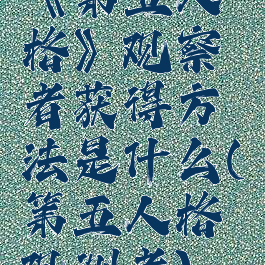 《第五人
格》观察
者获得方
法是什么(
第五人格
观测者)